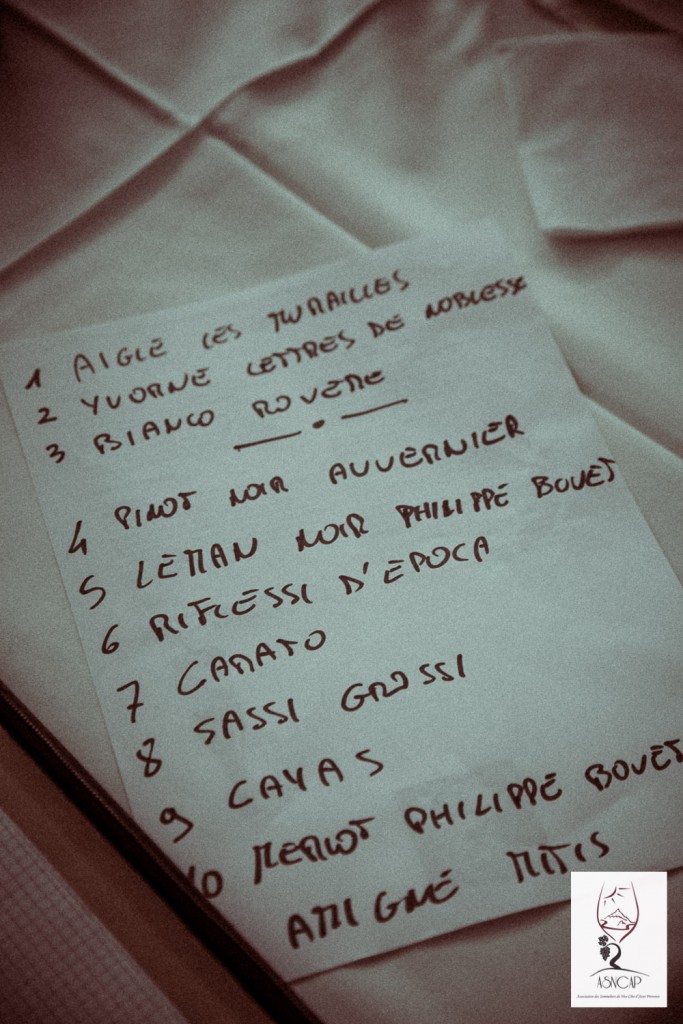 1 AIGLE LES MURAILLES
2 YVORNE LETTRES DE NOBLESSE
3 BIANCO ROVERE
4 PINOT NOIR AUVERNIER
5 LEMAN NOIR PHILIPPE BOVET
6 RIFLESSI D'EPOCA
7 CARATO
8 SASSI GROSSI
9 CAYAS
10 MERLOT PHILIPPE BOVET
AMIGNE MITIS
ASNCAP